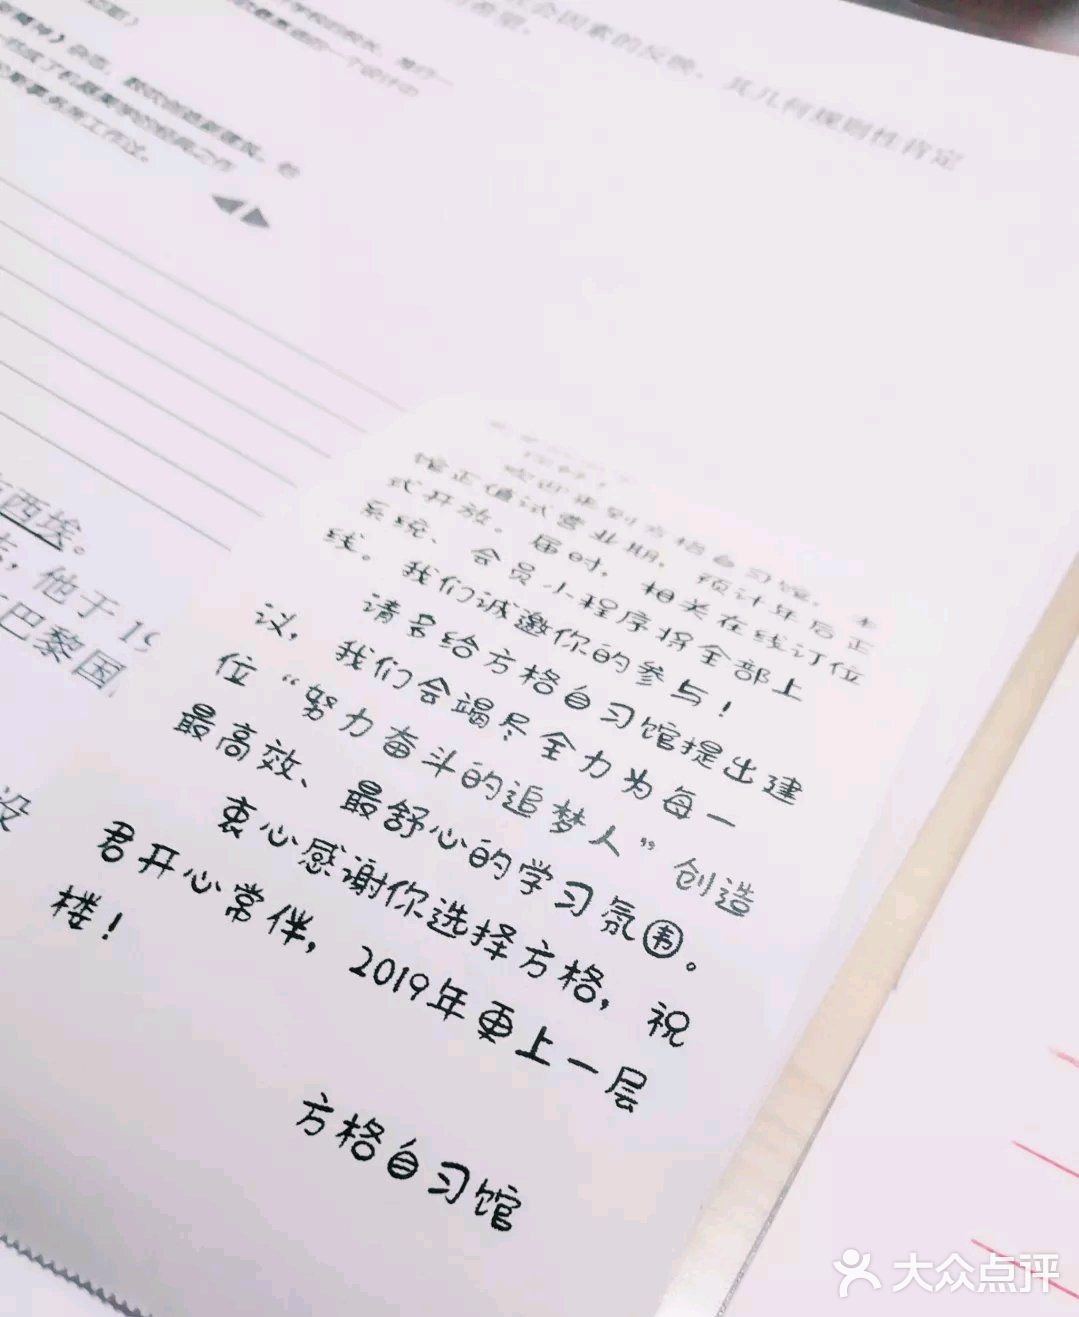 会因素的反映，其几何规则性肯定
西埃。
，他于19
巴黎国
设
欢迎来到方格自习馆，本
馆正值试营业期，预计年后正
式开放。届时，相关在线订位
系统、会员小程序将全部上
线。我们诚邀你的参与！
请多给方格自习馆提出建
议，我们会竭尽全力为每一
位“努力奋斗的追梦人”创造
最高效、最舒心的学习氛围。
衷心感谢你选择方格，祝
君开心常伴，2019年更上一层
楼！
方格自习馆
大众点评